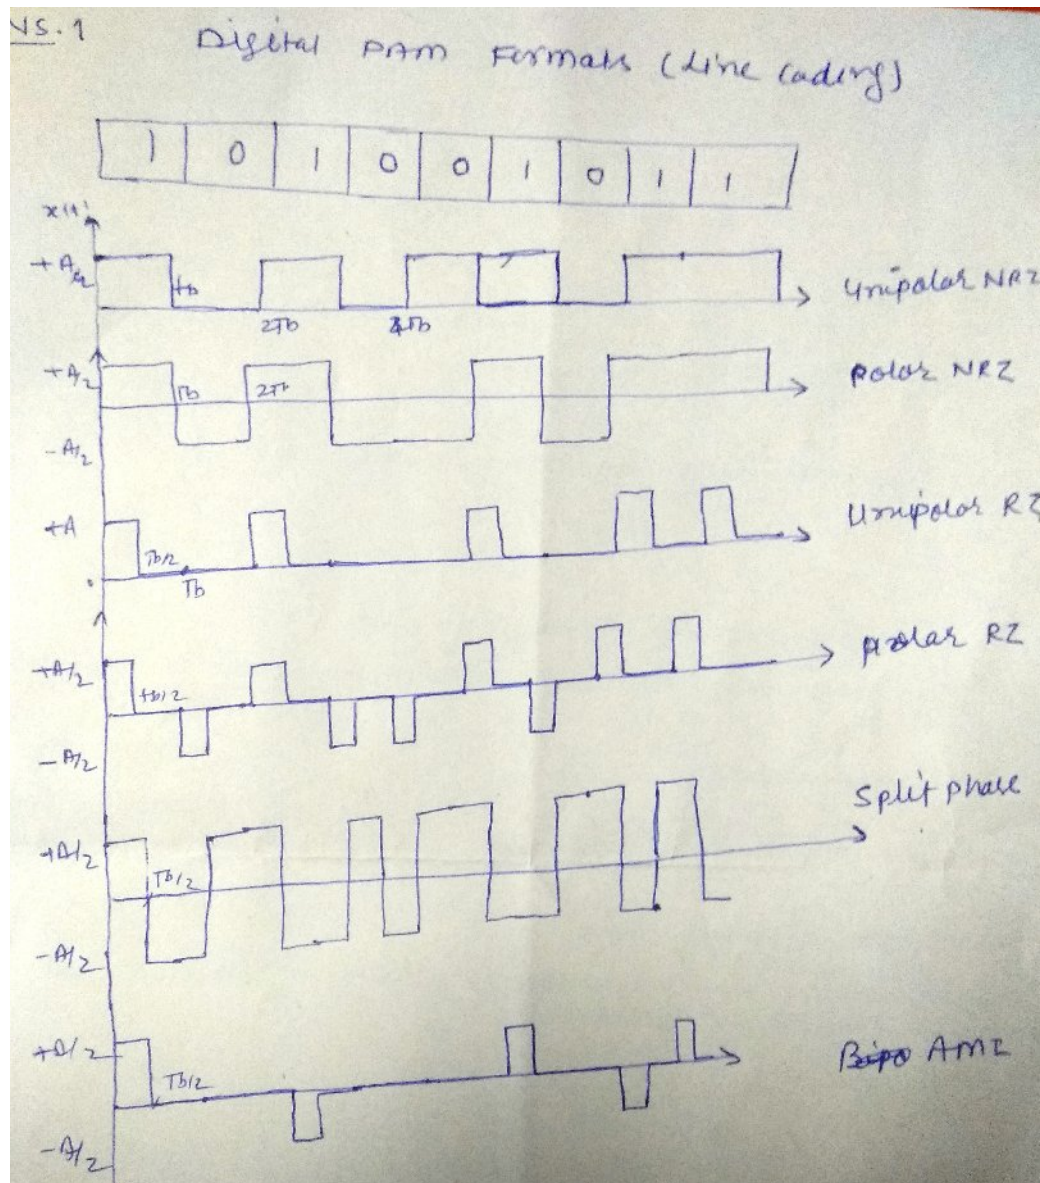 NS.1
Digital PAM Formats (Line Coding)
1 0 1 0 0 1 0 1 1
x(t)
+A/2
tb
2Tb
4Tb
Unipolar NRZ
+A/2
Tb
2Tb
-A/2
Polar NRZ
+A
Tb/2
Tb
Unipolar RZ
+A/2
tb/2
-A/2
Polar RZ
Split phase
+A/2
Tb/2
-A/2
+A/2
Tb/2
-A/2
AMI